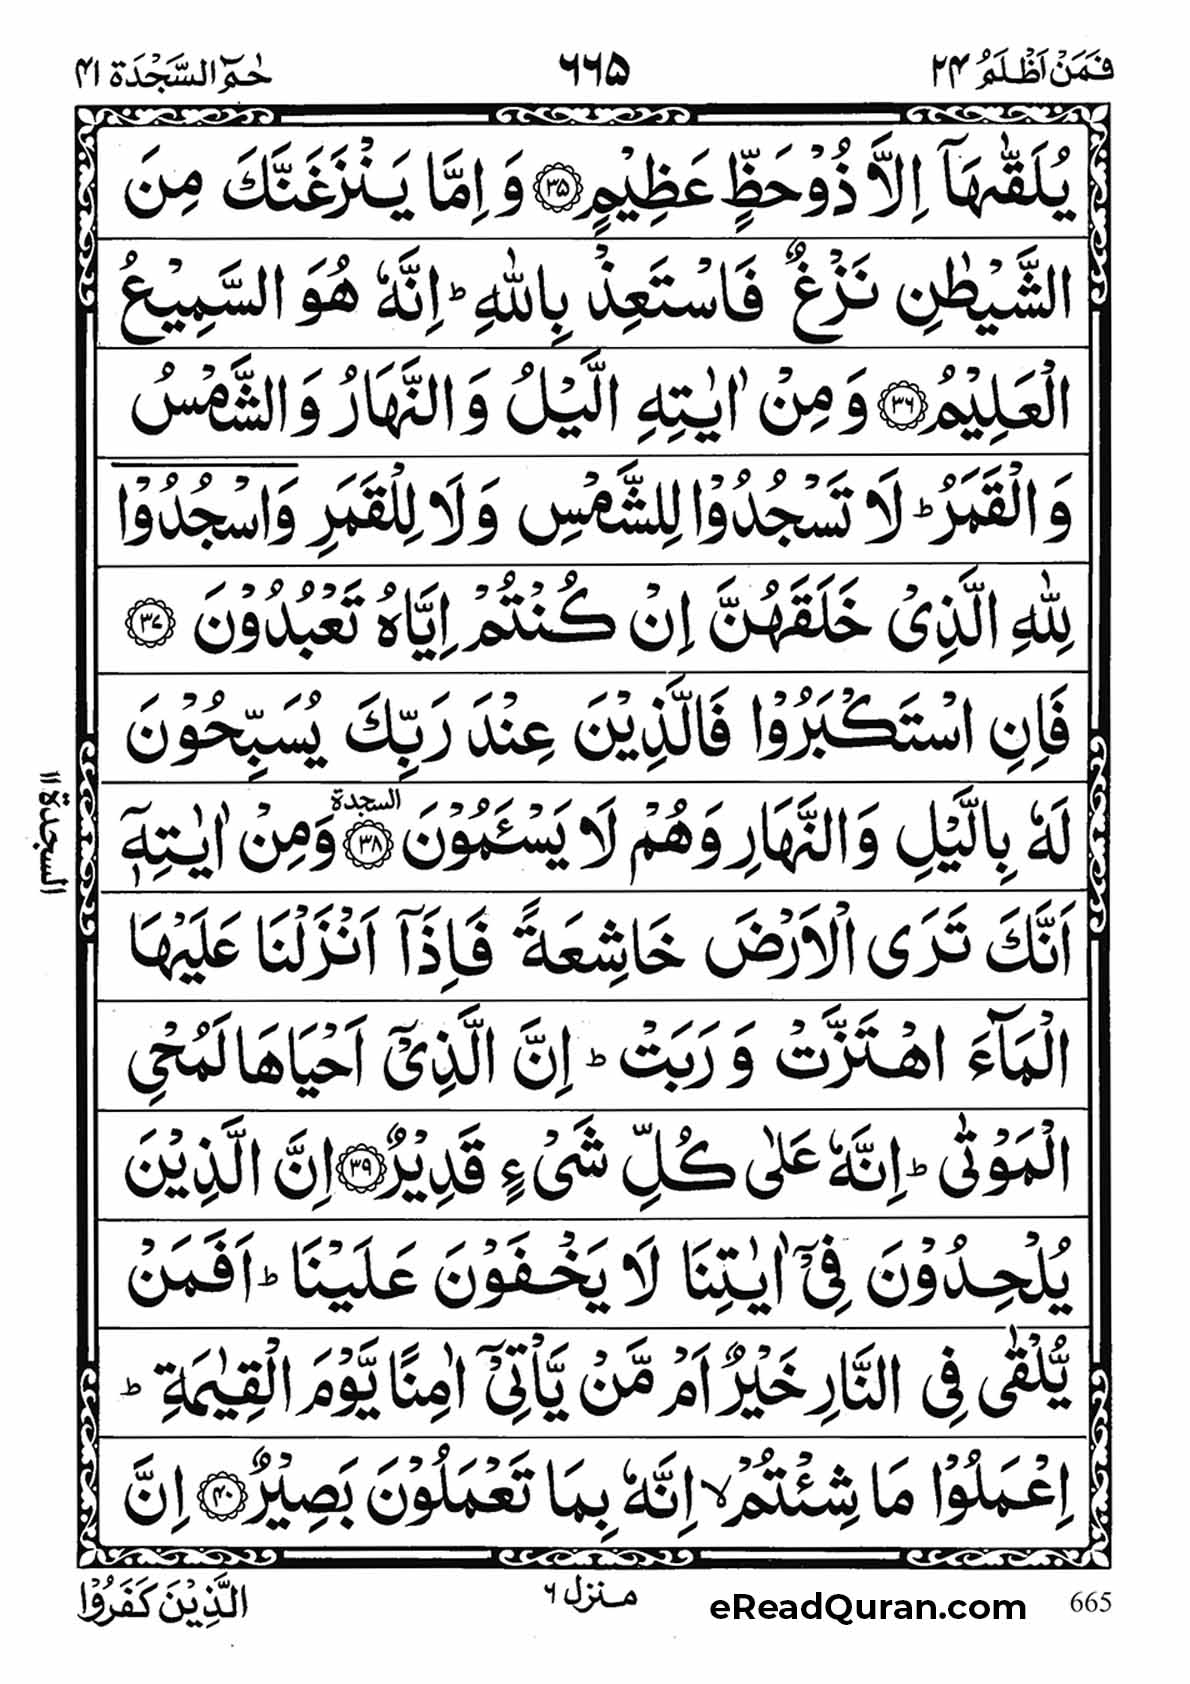 فَمَنْ اَظْلَمُ ٢٤
٦٦٥
حٰمٓ السَّجْدَة ٤١
يُلَقّٰىهَاۤ اِلَّا ذُوْ حَظٍّ عَظِيْمٍ ٣٥ وَ اِمَّا يَنْزَغَنَّكَ مِنَ
الشَّيْطٰنِ نَزْغٌ فَاسْتَعِذْ بِاللّٰهِ ؕ اِنَّهٗ هُوَ السَّمِيْعُ
الْعَلِيْمُ ٣٦ وَ مِنْ اٰيٰتِهِ الَّيْلُ وَ النَّهَارُ وَ الشَّمْسُ
وَ الْقَمَرُ ؕ لَا تَسْجُدُوْا لِلشَّمْسِ وَ لَا لِلْقَمَرِ وَ اسْجُدُوْا
لِلّٰهِ الَّذِيْ خَلَقَهُنَّ اِنْ كُنْتُمْ اِيَّاهُ تَعْبُدُوْنَ ٣٧
فَاِنِ اسْتَكْبَرُوْا فَالَّذِيْنَ عِنْدَ رَبِّكَ يُسَبِّحُوْنَ
لَهٗ بِالَّيْلِ وَ النَّهَارِ وَ هُمْ لَا يَسْـَٔمُوْنَ ٣٨ السجدة وَ مِنْ اٰيٰتِهٖۤ
السجدة ١١
اَنَّكَ تَرَى الْاَرْضَ خَاشِعَةً فَاِذَاۤ اَنْزَلْنَا عَلَيْهَا
الْمَآءَ اهْتَزَّتْ وَ رَبَتْ ؕ اِنَّ الَّذِيْۤ اَحْيَاهَا لَمُحْيِ
الْمَوْتٰى ؕ اِنَّهٗ عَلٰى كُلِّ شَيْءٍ قَدِيْرٌ ٣٩ اِنَّ الَّذِيْنَ
يُلْحِدُوْنَ فِيْۤ اٰيٰتِنَا لَا يَخْفَوْنَ عَلَيْنَا ؕ اَفَمَنْ
يُّلْقٰى فِي النَّارِ خَيْرٌ اَمْ مَّنْ يَّاْتِيْۤ اٰمِنًا يَّوْمَ الْقِيٰمَةِ ؕ
اِعْمَلُوْا مَا شِئْتُمْ ۙ اِنَّهٗ بِمَا تَعْمَلُوْنَ بَصِيْرٌ ٤٠ اِنَّ
الَّذِيْنَ كَفَرُوْا
منزل ٦
eReadQuran.com
665